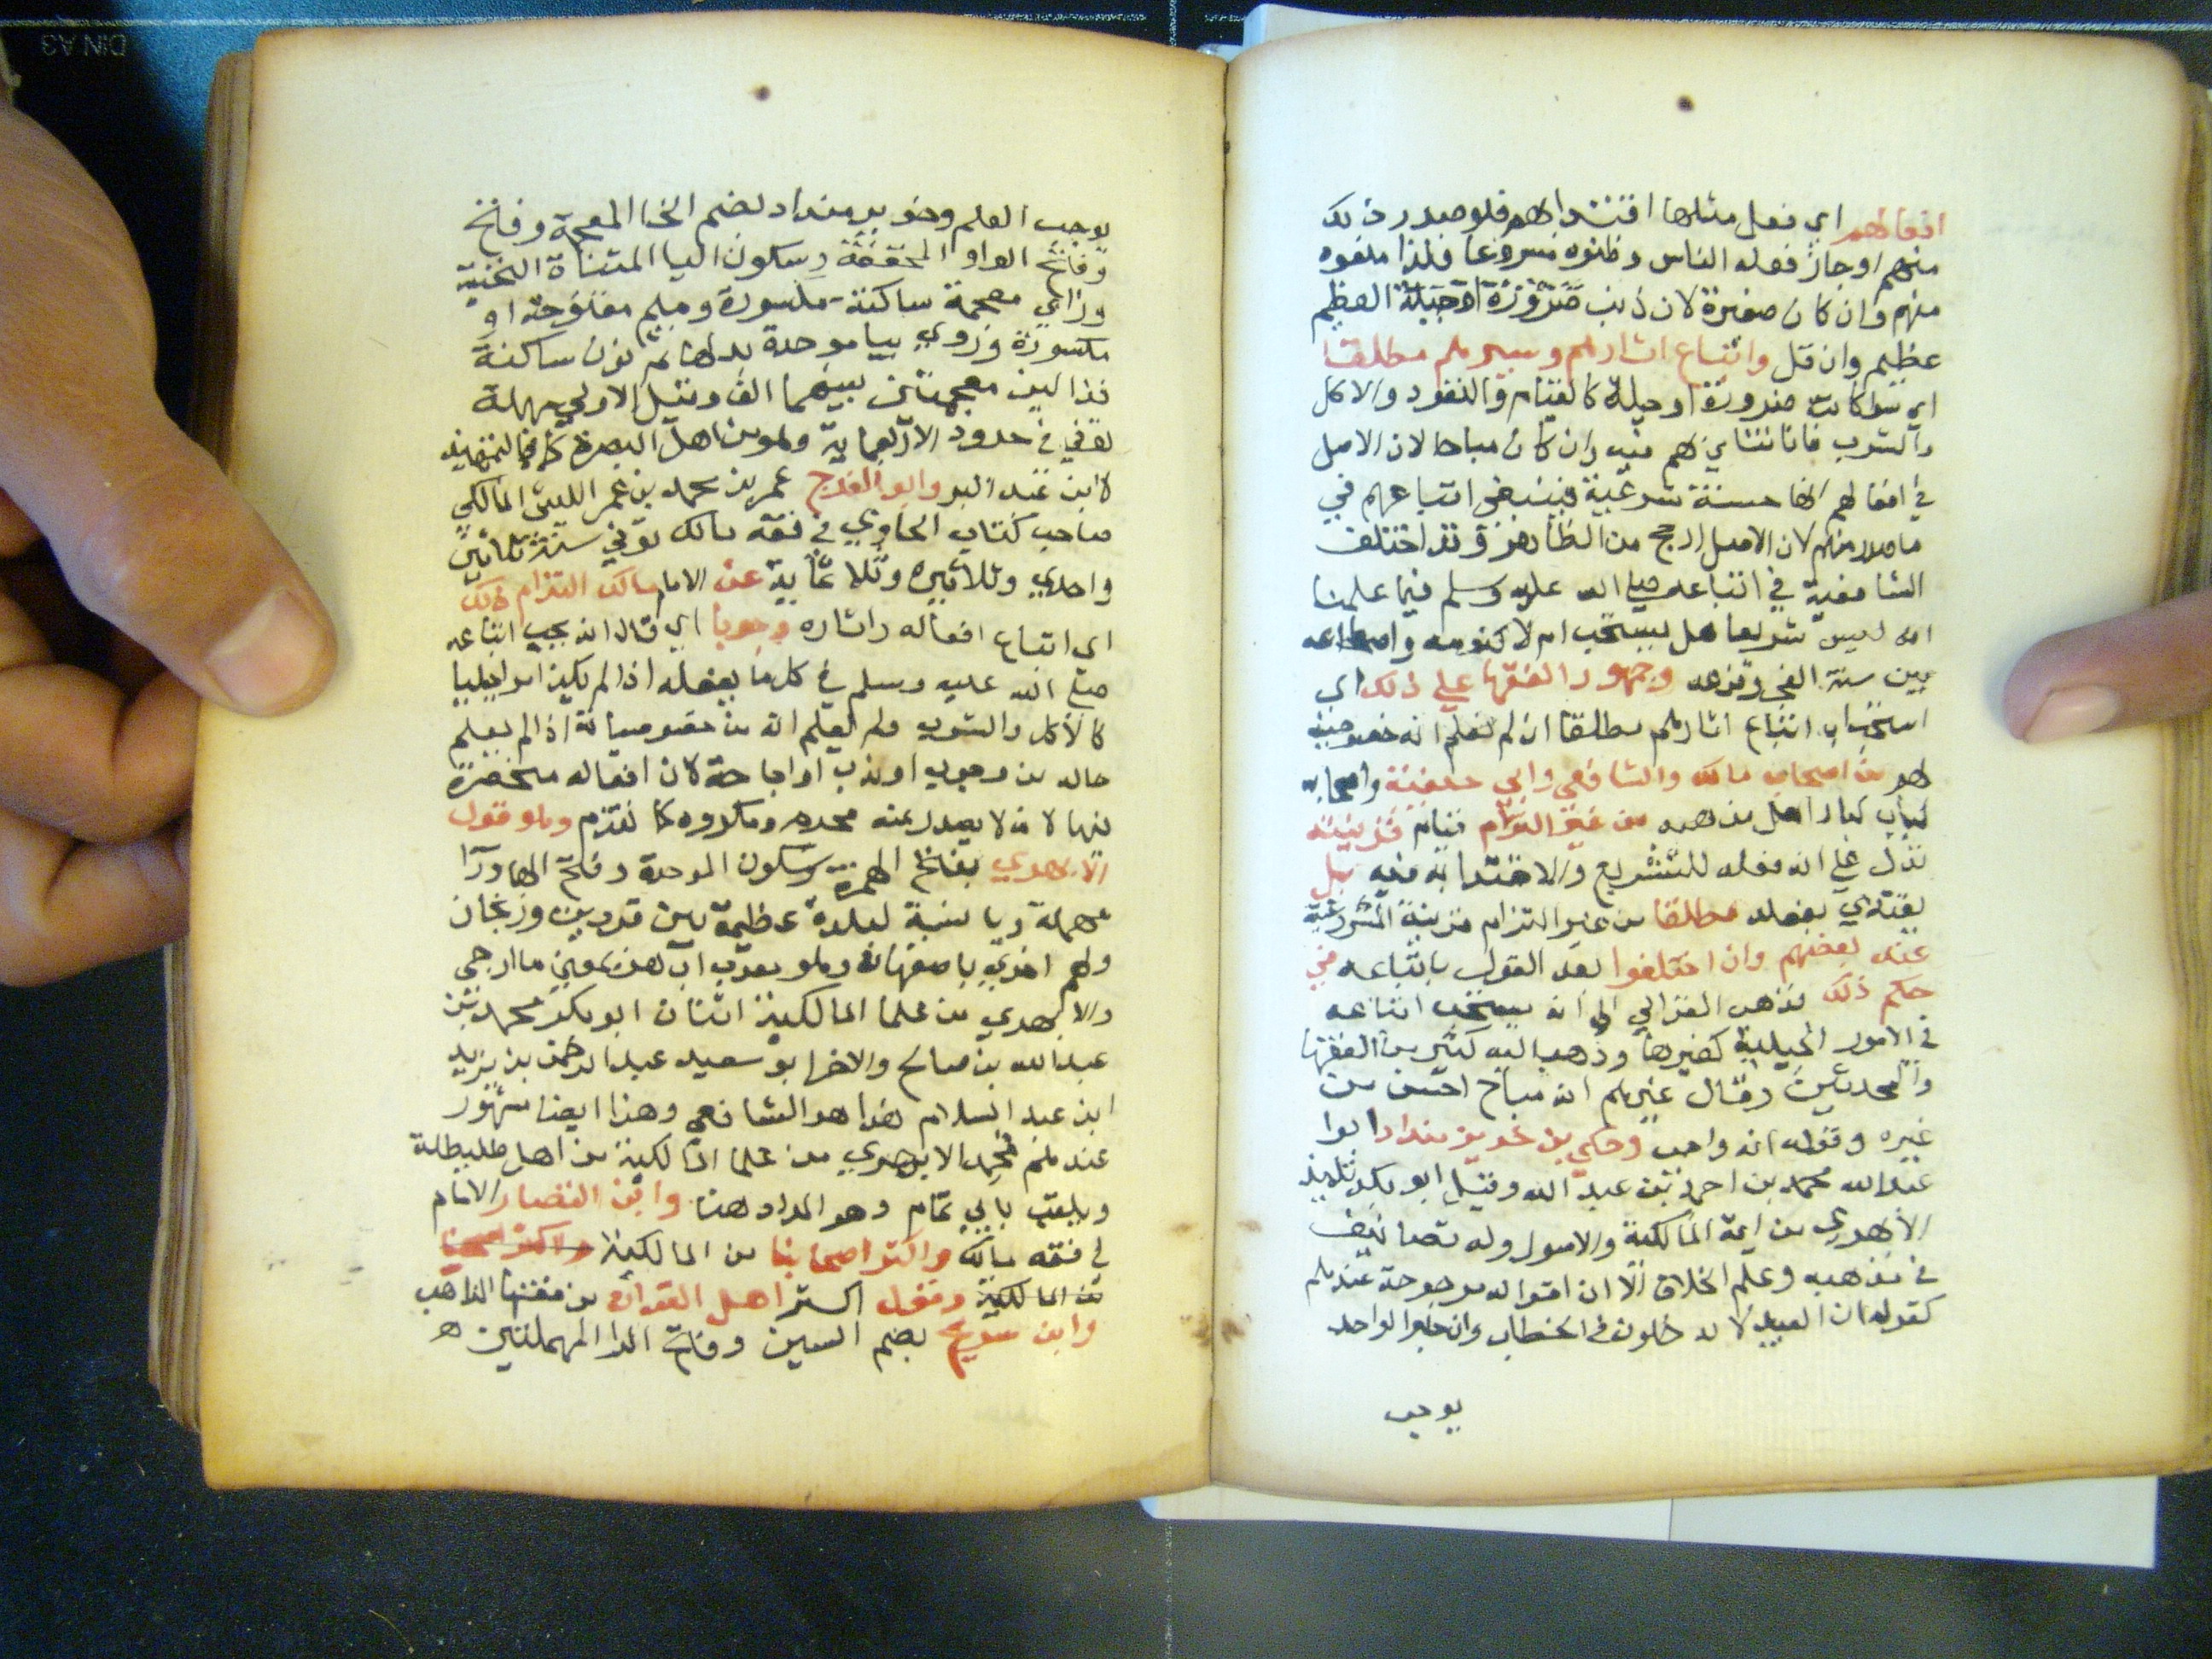 افعالهم اي فعل مثلها اقتدا بهم فلو صدر ذلك
منهم او جاز فعله الناس وظنوه مشروعا فلذا منعوه
منهم وان كان صغيرة لان ذنب العظيم
عظيم وان قل واتباع اثارهم وسيرهم مطلقا
اي سوا كانت ضرورة او جبلة كالقيام والقعود والاكل
والشرب فانا نتاسي بهم فيه وان كان مباحا لان الاصل
في افعالهم انها حسنة شرعية فينبغي اتباعهم في
ما صدر منهم لان الاصل ارجح من الظاهر وقد اختلف
الشافعية في اتباعه صلى الله عليه وسلم فيما علمنا
انه ليس تشريعا هل يستحب ام لا كنومه واضطجاعه
بين سنة الفجر وفرضه وجمهور الفقها على ذلك اي
استحباب اتباع اثارهم مطلقا ان لم نعلم انه خصوصية
لهم من اصحاب مالك والشافعي وابي حنيفة واصحابه
كبار اهل مذهبه من غير التزام قيام قرينة
تدل على انه فعله للتشريع والاقتدا به فيه بل
يقتدي بفعله مطلقا من غير التزام قرينة المشروعية
عند بعضهم وان اختلفوا بعد القول باتباعه في
حكم ذلك فذهب الغزالي الى انه يستحب اتباعه
في الامور الجبلية كغيرها وذهب اليه كثير من الفقها
والمحدثين وقال غيرهم انه مباح احسن من
غيره وقوله انه واجب وحكى بن خويز منداد ابوا
عبد الله محمد بن احمد بن عبد الله وقيل ابو بكر تلميذ
الابهري من ايمة المالكية والاصول وله تصانيف
في مذهبه وعلم الخلاف الا ان اقواله مرجوحة عندهم
كقوله ان العبيد لا يدخلون في الخطاب وان خبر الواحد
يوجب
يوجب العلم وخويز منداد بضم الخا المعجمة وفتح
وفتح الواو المخففة وسكون اليا المثناة التحتية
وزاي معجمة ساكنة مكسورة وميم مفتوحة او
مكسورة وروي ببا موحدة بدلها ثم نون ساكنة
فذالين معجمتين بينهما الف وقيل الاولى مهملة
توفي في حدود الاربعماية وهو من اهل البصرة كما في التمهيد
لابن عبد البر وابو الفرج عمر بن محمد بن عمر الليثي المالكي
صاحب كتاب الحاوي في فقه مالك توفي سنة ثلاثين
واحدي وثلاثين وثلاثماية عن الامام مالك التزام ذلك
اي اتباع افعاله واثاره وجوبا اي قال انه يجب اتباعه
صلى الله عليه وسلم في كل ما يفعله اذا لم يكن امرا جبليا
كالاكل والشرب ولم يعلم انه من خصوصياته اذا لم يعلم
حاله من وجوب او ندب او اباحة لان افعاله منحصرة
فيها لانه لا يصدر عنه محرم ومكروه كما تقدم وهو قول
الابهري بفتح الهمزة وسكون الموحدة وفتح الها ورا
مهملة ويا نسبة لبلدة عظيمة بين قزوين وزنجان
ولهم اخري باصفهان وهو معرب اب هر بمعنى ما ارحي
والابهري من علما المالكية اثنان ابو بكر محمد بن
عبد الله بن صالح والاخر ابو سعيد عبد الرحمن بن يزيد
ابن عبد السلام هذا هو الشافعي وهذا ايضا مشهور
عندهم الابهري من علما المالكية من اهل طليطلة
ويلقب بابي تمام وهو المراد هنا وابن القصار الامام
في فقه مالك واكثر اصحابنا من المالكية واكثر اصحابنا
من المالكية وقول اكثر اهل العراق من فقها المذاهب
وابن سريج بضم السين وفتح الرا المهملتين ه